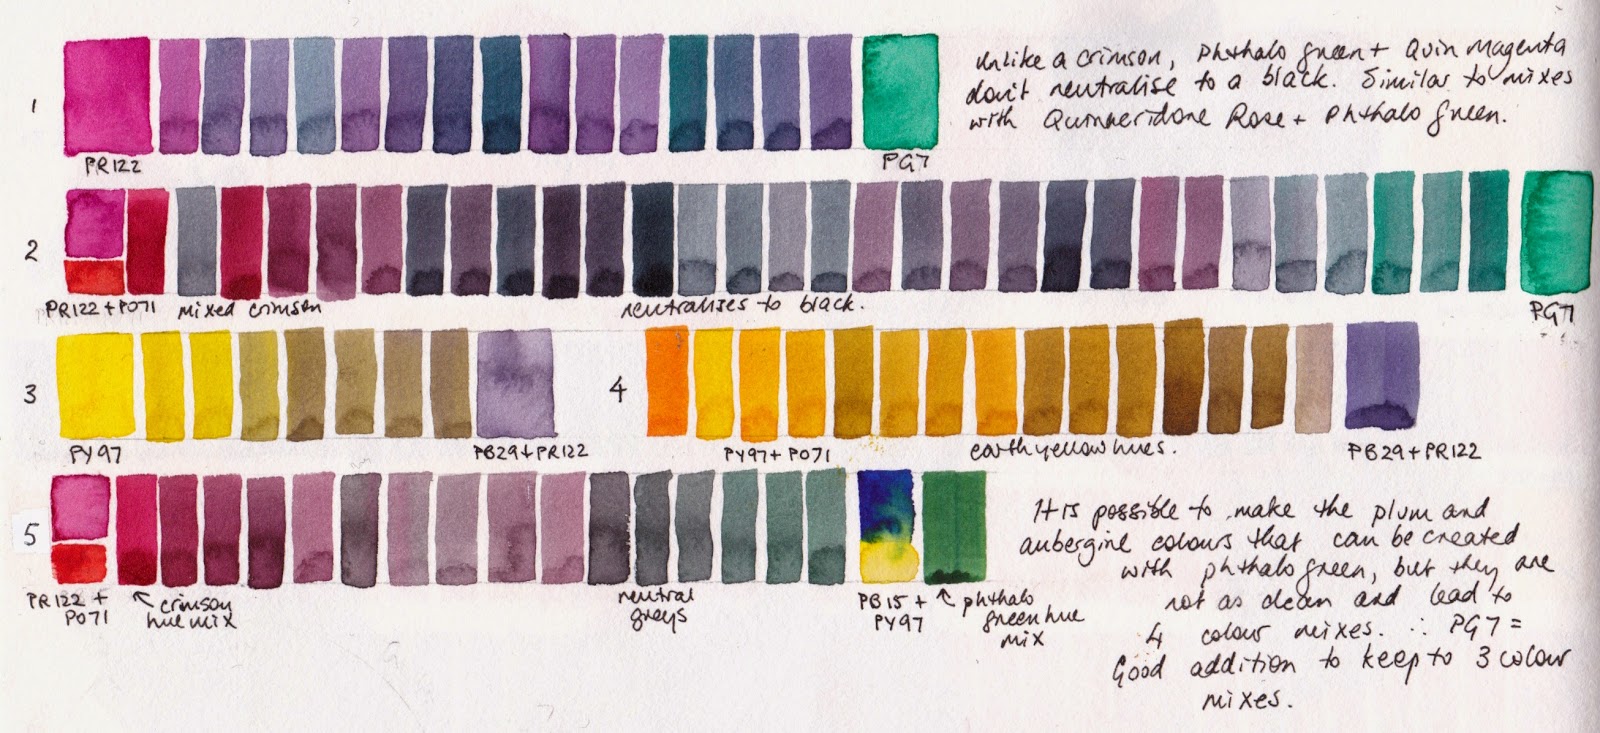 1
unlike a crimson, phthalo green + Quin Magenta
don't neutralise to a black. Similar to mixes
with Quinacridone Rose + Phthalo green.
PR122
PG7
2
PR122 + PO71
mixed crimson
neutralises to black.
PG7
3
PY97
PB29 + PR122
4
PY97 + PO71
earth yellow hues.
PB29 + PR122
5
PR122 +
PO71
crimson
hue mix
neutral
greys
PB15 +
PY97
phthalo
green hue
mix
It is possible to make the plum and
aubergine colours that can be created
with phthalo green, but they are
not as clean and lead to
4 colour mixes. ∴ PG7 =
Good addition to keep to 3 colour
mixes.